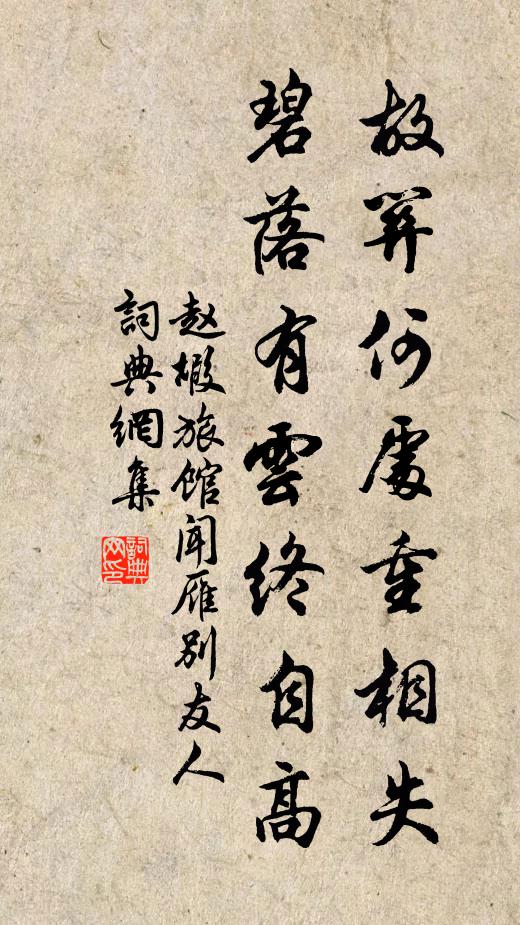 故關何處重相失
碧落有雲終自高
赵嘏旅馆闻雁别友人
詞典網集
詞典网印